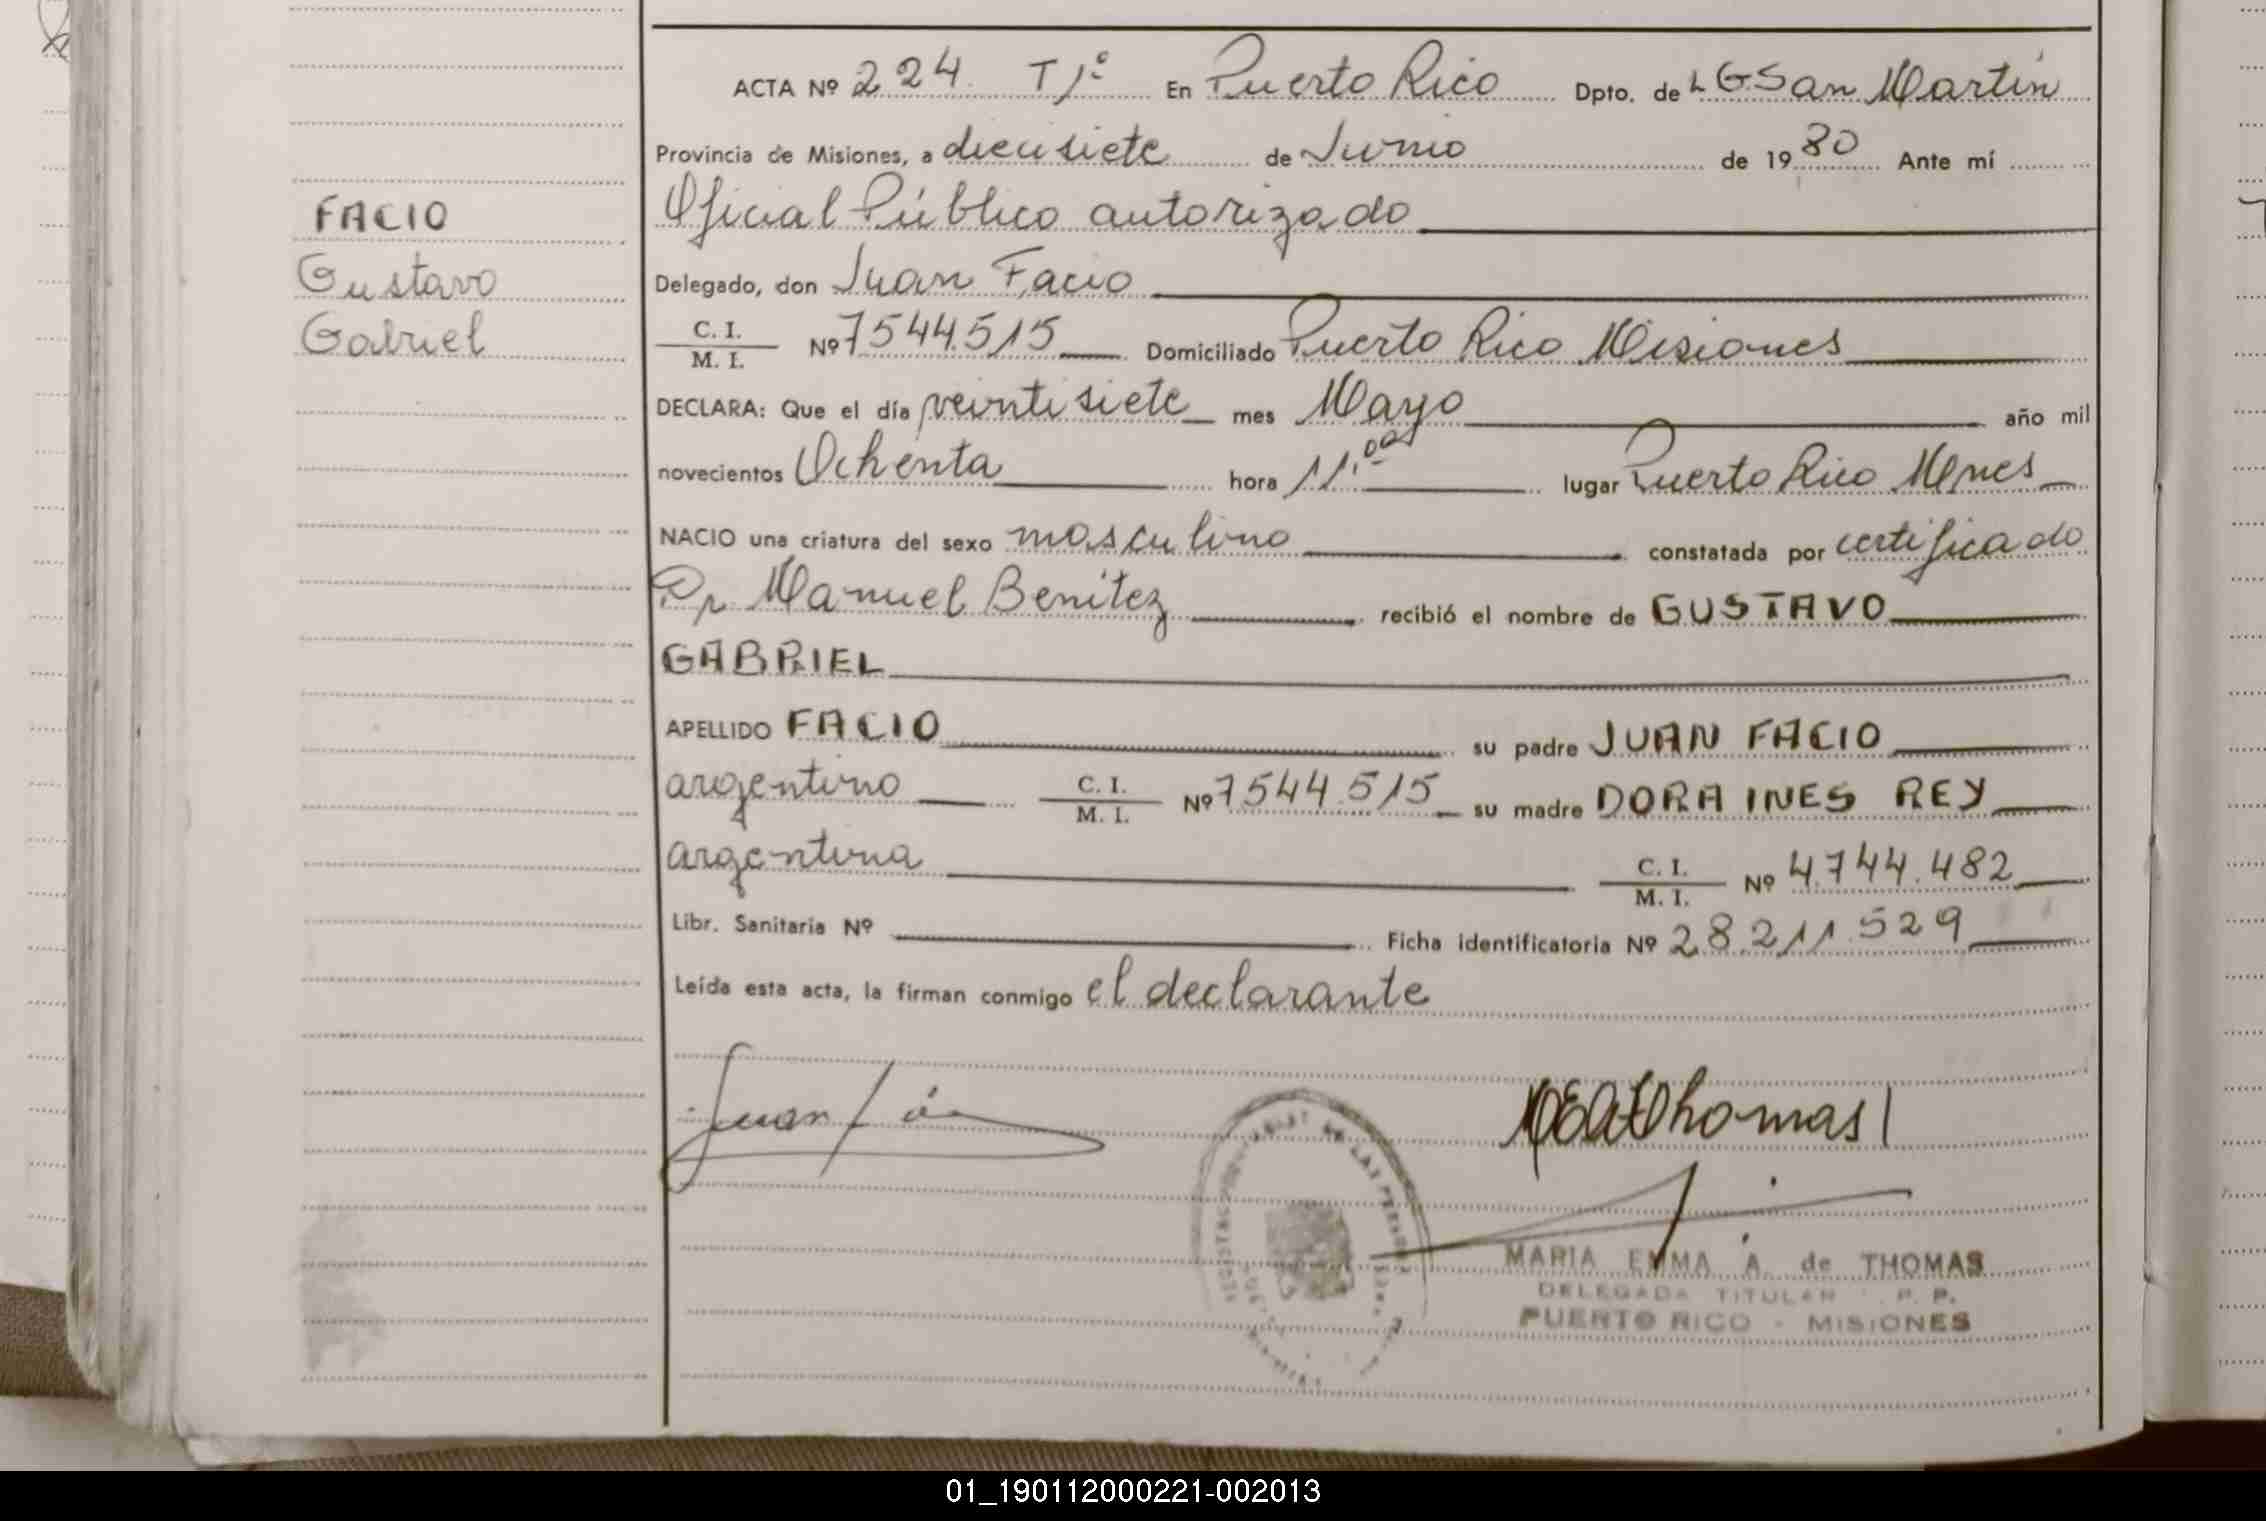 ACTA Nº 224 T 1º En Puerto Rico Dpto. de L G San Martín
Provincia de Misiones, a diecisiete de Junio de 1980 Ante mí
Oficial Público autorizado
FACIO
Gustavo
Gabriel
Delegado, don Juan Facio
C. I.
M. I.
Nº 7544.515 Domiciliado Puerto Rico Misiones
DECLARA: Que el día veintisiete mes Mayo año mil
novecientos Ochenta hora 11,00 lugar Puerto Rico Mnes
NACIO una criatura del sexo masculino constatada por certificado
Dr Manuel Benitez recibió el nombre de GUSTAVO
GABRIEL
APELLIDO FACIO su padre JUAN FACIO
argentino C. I. M. I. Nº 7544.515 su madre DORA INES REY
argentina C. I. M. I. Nº 4.744.482
Libr. Sanitaria Nº Ficha identificatoria Nº 28.211.529
Leída esta acta, la firman conmigo el declarante
Juan
Thomas
MARIA EMMA A. de THOMAS
DELEGADA TITULAR P. P.
PUERTO RICO - MISIONES
01_190112000221-002013